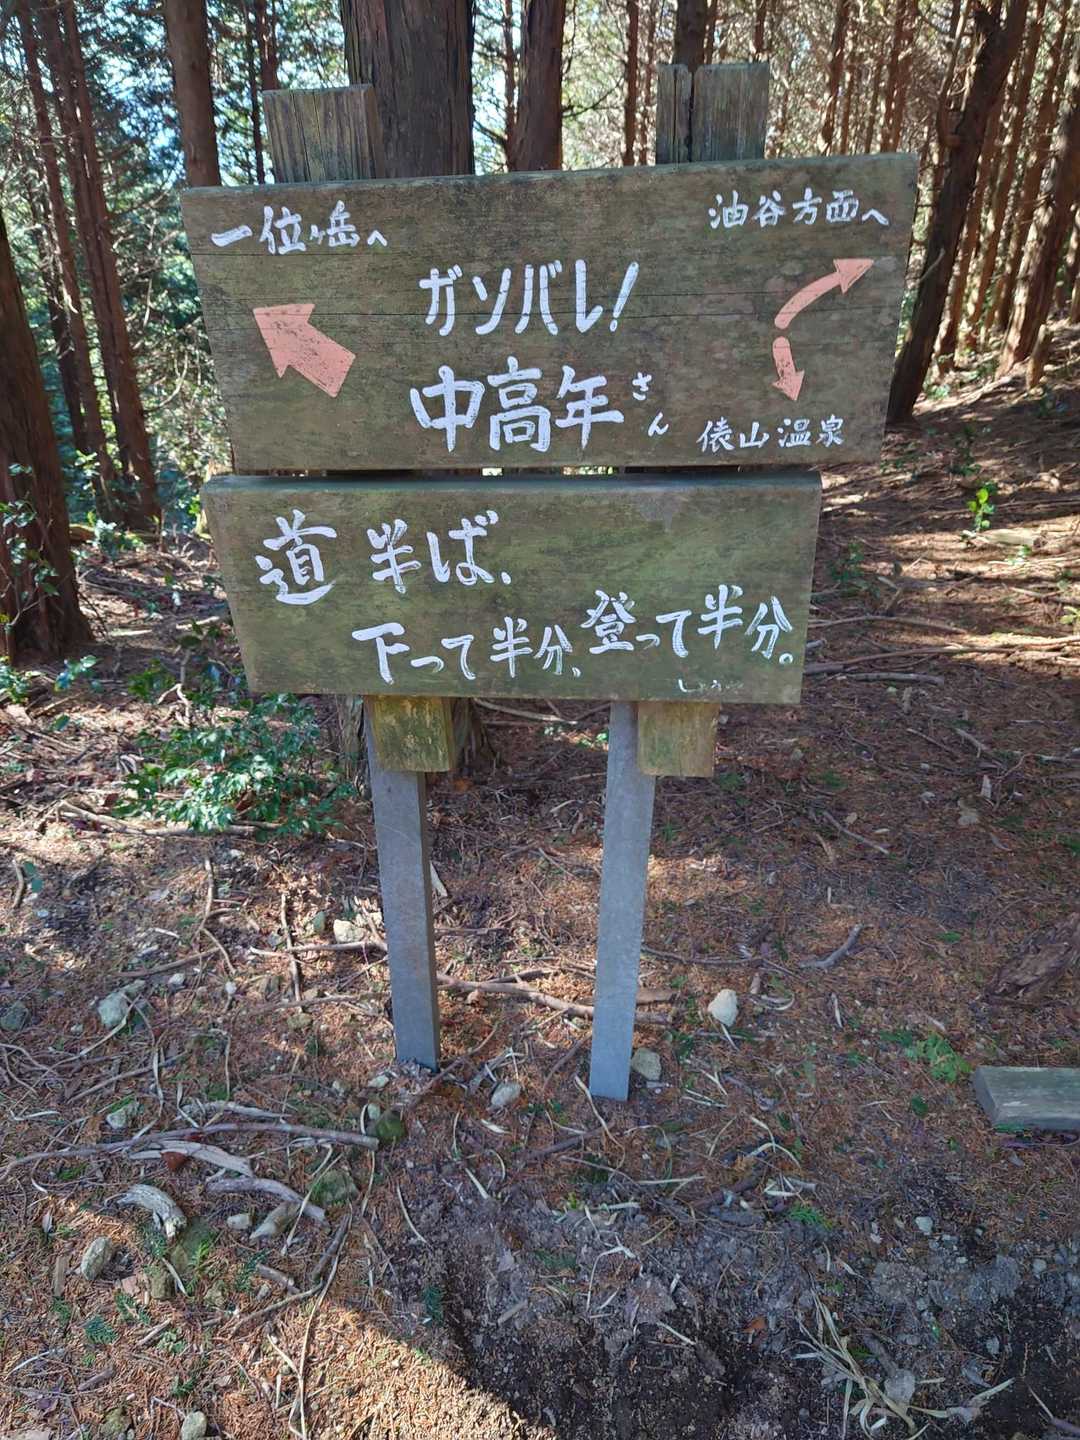 一位ヶ岳へ
油谷方面へ
ガンバレ!
中高年さん
俵山温泉
道半ば、
下って半分、登って半分。